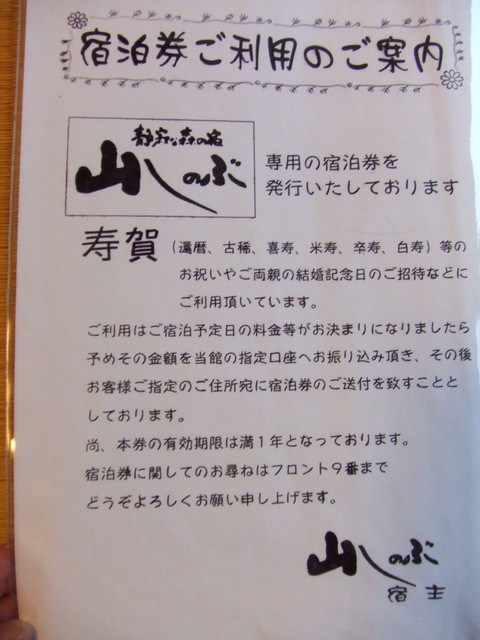 宿泊券ご利用のご案内
静寂な森の宿
山しのぶ
専用の宿泊券を
発行いたしております
寿賀（還暦、古稀、喜寿、米寿、卒寿、白寿）等の
お祝いやご両親の結婚記念日のご招待などに
ご利用頂いています。
ご利用はご宿泊予定日の料金等がお決まりになりましたら
予めその金額を当館の指定口座へお振り込み頂き、その後
お客様ご指定のご住所宛に宿泊券のご送付を致すことと
しております。
尚、本券の有効期限は満１年となっております。
宿泊券に関してのお尋ねはフロント９番まで
どうぞよろしくお願い申し上げます。
山しのぶ
宿 主